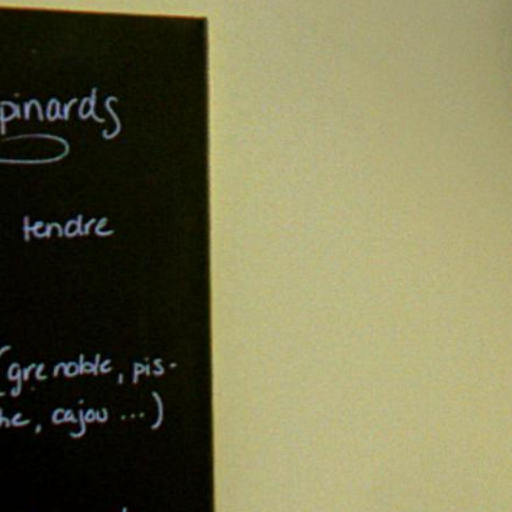 pinards
tendre
(grenoble, pis-
he, cajou ...)